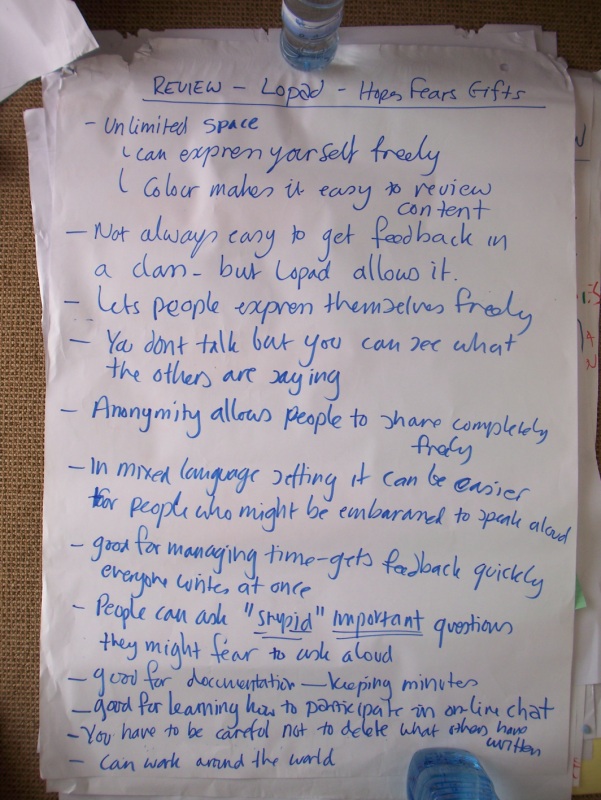 REVIEW - Lopad - Hopes Fears Gifts
- Unlimited space
can express yourself freely
Colour makes it easy to review
content
- Not always easy to get feedback in
a class - but Lopad allows it.
- Lets people express themselves freely
- You dont talk but you can see what
the others are saying
- Anonymity allows people to share completely
freely
- In mixed language setting it can be easier
for people who might be embarassed to speak aloud
- good for managing time - gets feedback quickly
everyone writes at once
- People can ask "stupid" important questions
they might fear to ask aloud
- good for documentation - keeping minutes
- good for learning how to participate in on-line chat
- You have to be careful not to delete what others have
written
- Can work around the world